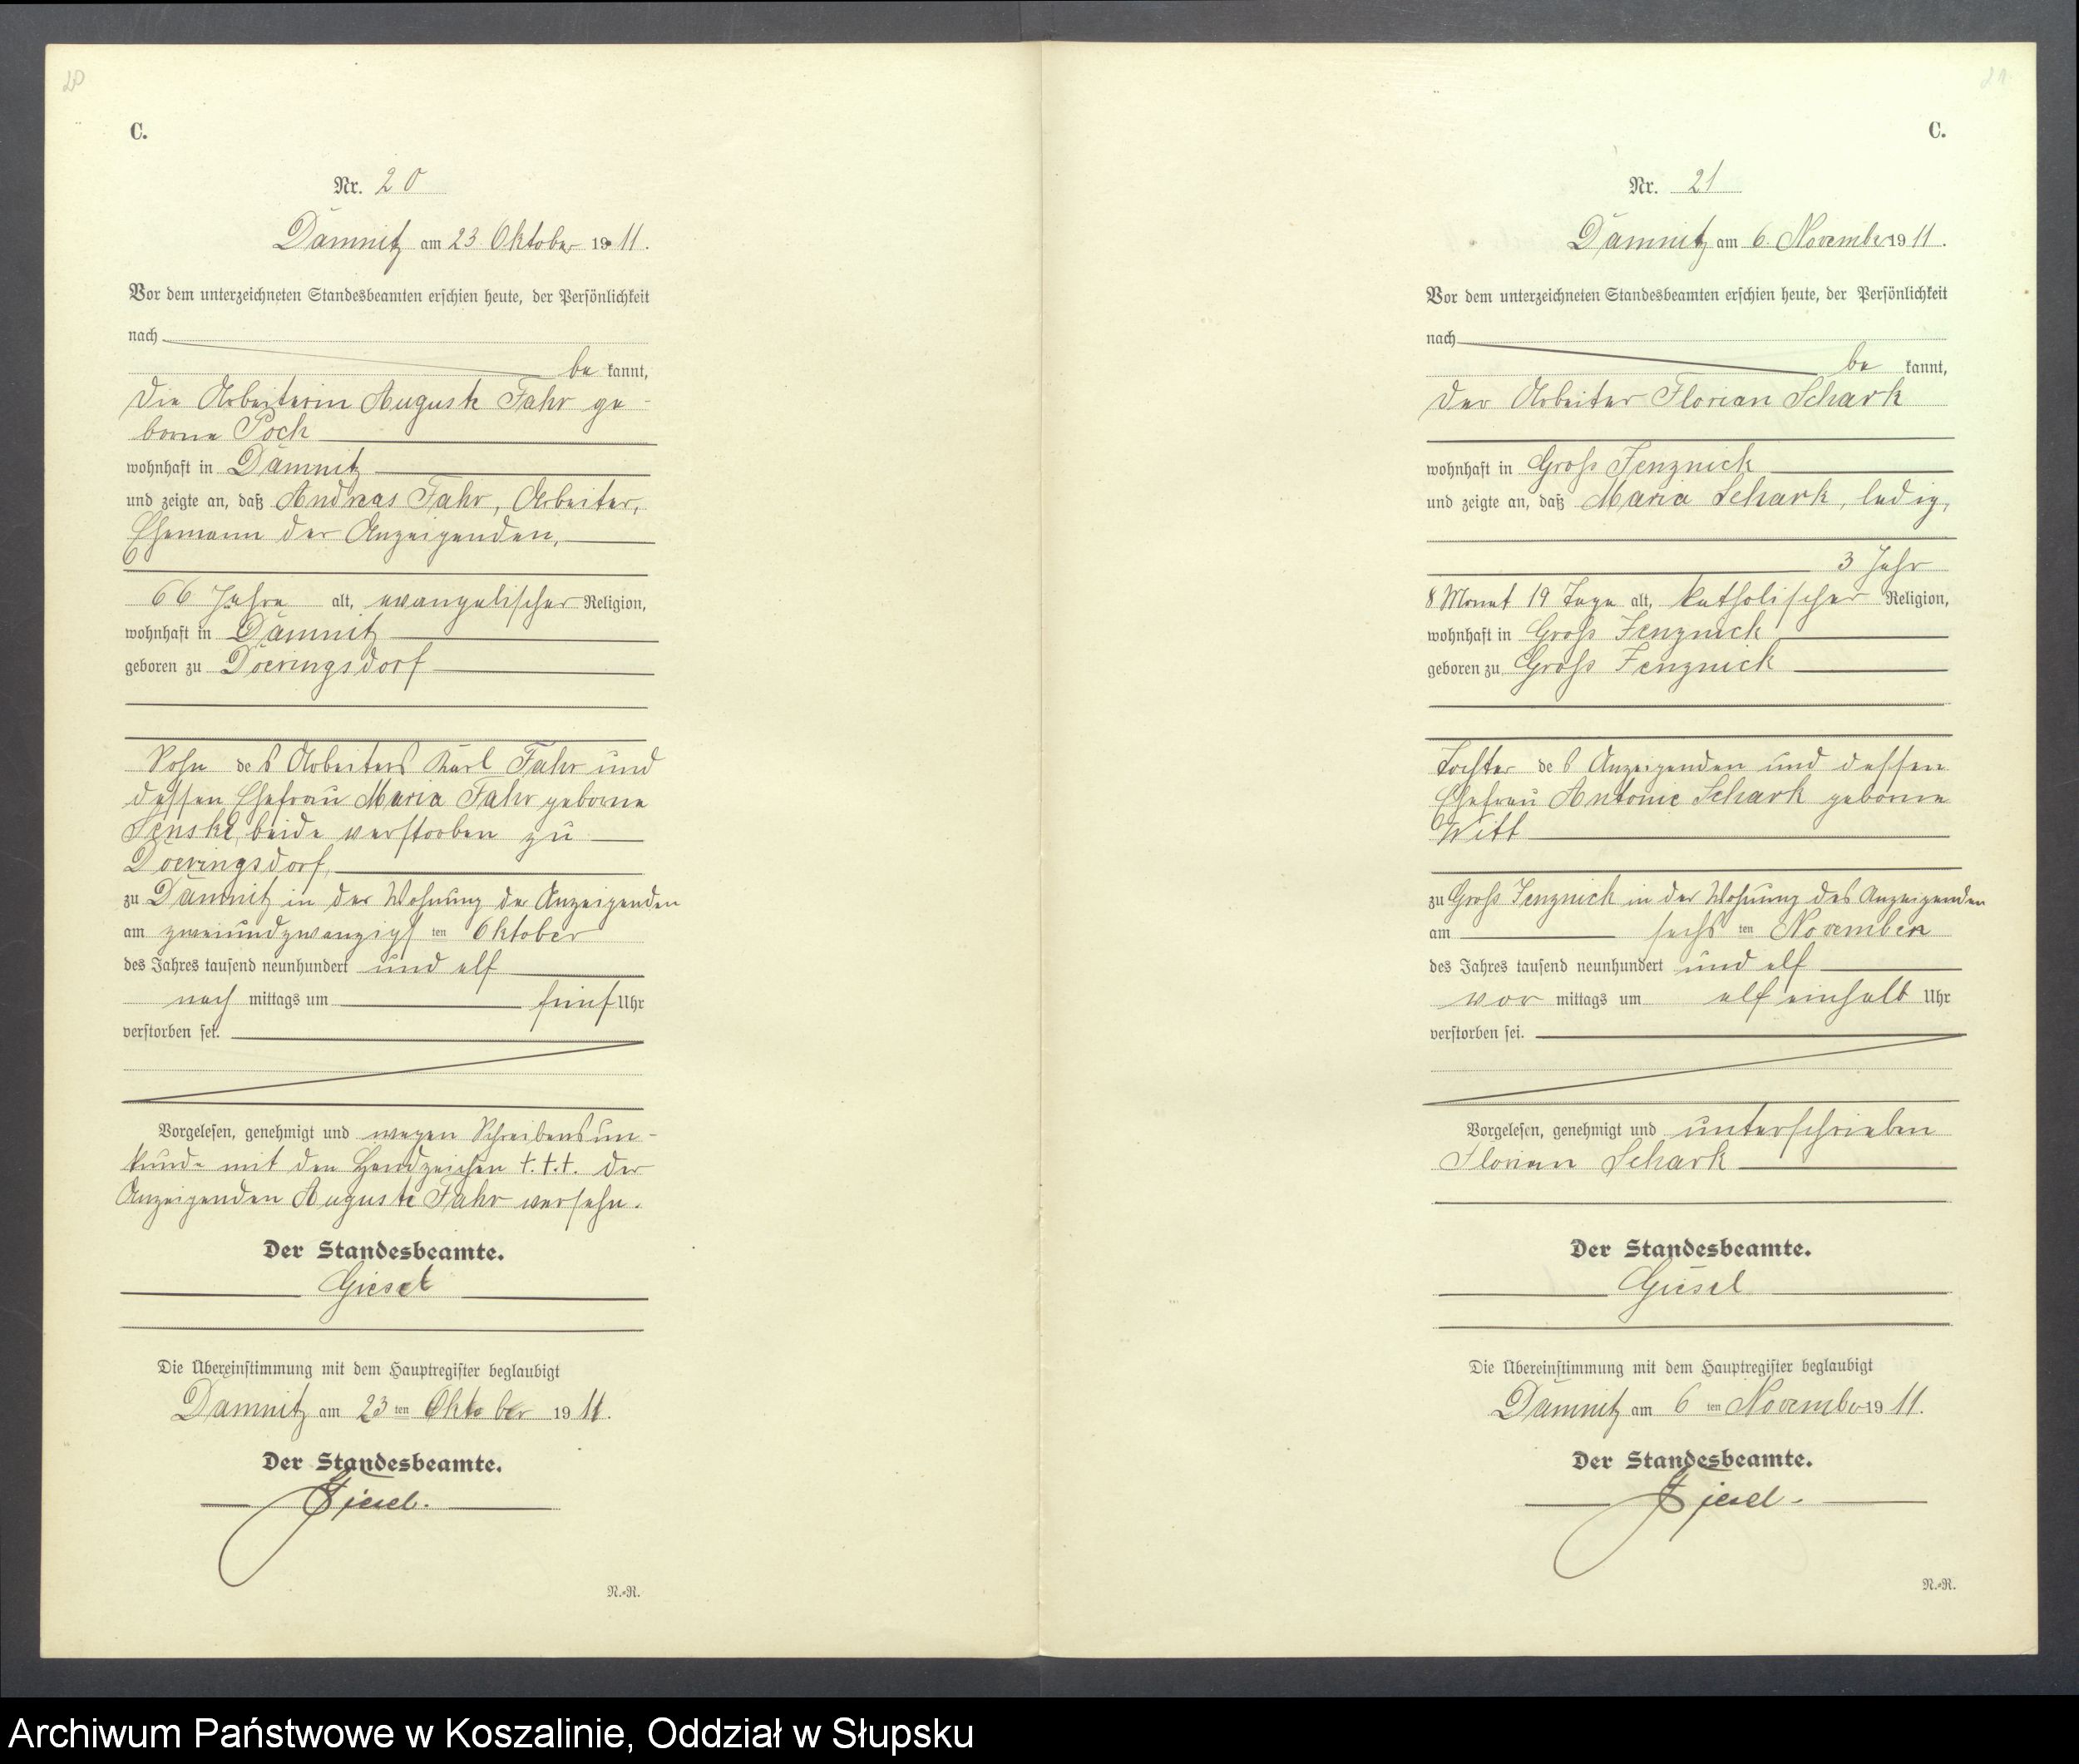 20
C.
Nr. 20
Damnitz am 23 Oktober 1911.
Vor dem unterzeichneten Standesbeamten erschien heute, der Persönlichkeit
nach
be kannt,
die Arbeiterin Auguste Fahr ge-
borne Poch
wohnhaft in Damnitz
und zeigte an, daß Andreas Fahr, Arbeiter,
Ehemann der Anzeigenden,
66 Jahre alt, evangelischer Religion,
wohnhaft in Damnitz
geboren zu Doeringsdorf
Sohn des Arbeiters Karl Fahr und
dessen Ehefrau Maria Fahr geborne
beide verstorben zu
Doeringsdorf,
zu Damnitz in der Wohnung der Anzeigenden
am zweiundzwanzigsten Oktober
des Jahres tausend neunhundert und elf
nach mittags um fünf Uhr
verstorben sei.
Vorgelesen, genehmigt und wegen Schreibensun-
kunde mit den Handzeichen †.†.†. der
Anzeigenden Auguste Fahr versehn.
Der Standesbeamte.
Giesel
Die Übereinstimmung mit dem Hauptregister beglaubigt
Damnitz am 23 ten Oktober 1911.
Der Standesbeamte.
Giesel.
N.-R.
21
C.
Nr. 21
Damnitz am 6. November 1911.
Vor dem unterzeichneten Standesbeamten erschien heute, der Persönlichkeit
nach
be kannt,
der Arbeiter Florian Schark
wohnhaft in Groß Jenznick
und zeigte an, daß Maria Schark, ledig,
3 Jahr
8 Monat 19 Tage alt, katholischer Religion,
wohnhaft in Groß Jenznick
geboren zu Groß Jenznick
Tochter des Anzeigenden und dessen
Ehefrau Antonie Schark geborne
Witt
zu Groß Jenznick in der Wohnung des Anzeigenden
am sechsten November
des Jahres tausend neunhundert und elf
vor mittags um elf einhalb Uhr
verstorben sei.
Vorgelesen, genehmigt und unterschrieben
Florian Schark
Der Standesbeamte.
Giesel
Die Übereinstimmung mit dem Hauptregister beglaubigt
Damnitz am 6 ten November 1911.
Der Standesbeamte.
Giesel.
N.-R.
Archiwum Państwowe w Koszalinie, Oddział w Słupsku